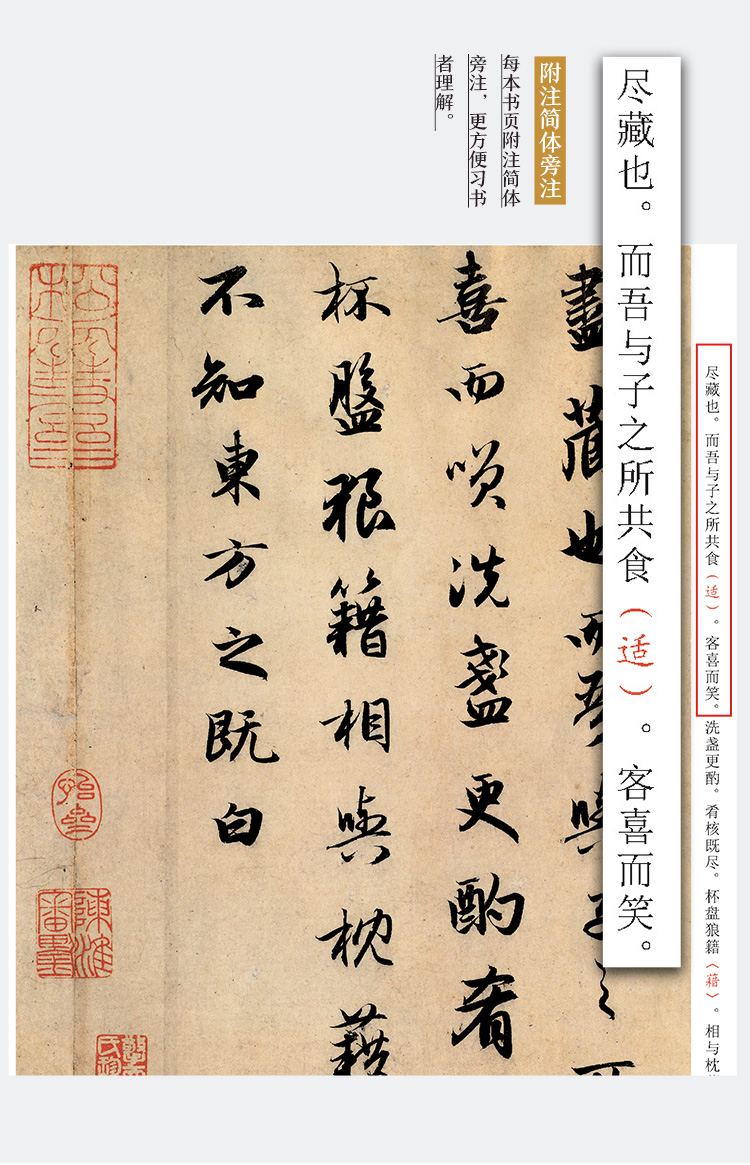 尽藏也。而吾与子之所共食（适）。客喜而笑。
附注简体旁注
每本书页附注简体
旁注，更方便习书
者理解。
尽藏也。而吾与子之所共食（适）。客喜而笑。洗盏更酌。肴核既尽。杯盘狼籍〈藉〉。相与枕
盡藏也而吾與子之所
喜而咲洗盞更酌肴
杯盤狼籍相與枕藉
不知東方之既白